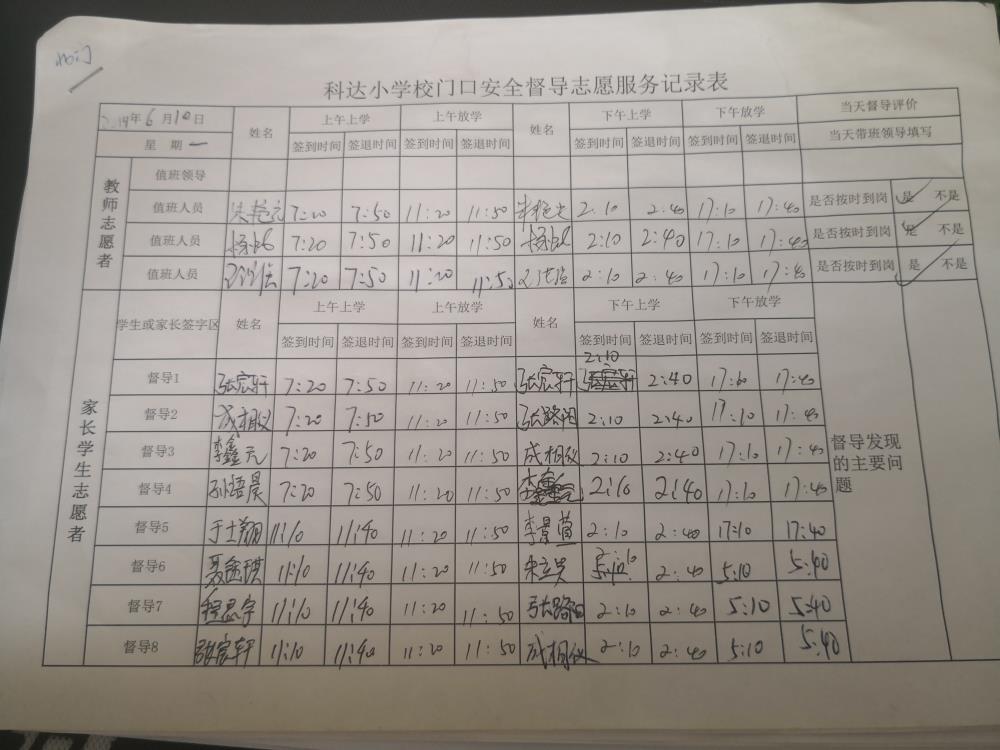 北门
科达小学校门口安全督导志愿服务记录表
2019年6月10日 姓名 上午上学 上午放学 姓名 下午上学 下午放学 当天督导评价
星 期一 签到时间 签退时间 签到时间 签退时间 签到时间 签退时间 签到时间 签退时间 当天带班领导填写
教师志愿者
值班领导
值班人员 7:20 7:50 11:20 11:50 2:10 2:40 17:10 17:40 是否按时到岗 是 不是
值班人员 7:20 7:50 11:20 11:50 2:10 2:40 17:10 17:40 是否按时到岗 是 不是
值班人员 7:20 7:50 11:20 11:50 2:10 2:40 17:10 17:40 是否按时到岗 是 不是
家长学生志愿者
学生或家长签字区 姓名 上午上学 上午放学 姓名 下午上学 下午放学
签到时间 签退时间 签到时间 签退时间 签到时间 签退时间 签到时间 签退时间
督导1 张宸轩 7:20 7:50 11:20 11:50 张宸轩 2:10 2:40 17:10 17:40
督导2 成相仪 7:20 7:50 11:20 11:50 2:10 2:40 17:10 17:40
督导3 李鑫元 7:20 7:50 11:20 11:50 成相仪 2:10 2:40 17:10 17:40
督导4 孙语晨 7:20 7:50 11:20 11:50 2:10 2:40 17:10 17:40
督导5 于士翔 11:10 11:40 11:20 11:50 李景萱 2:10 2:40 17:10 17:40
督导6 聂鑫琪 11:10 11:40 11:20 11:50 2:10 2:40 5:10 5:40
督导7 程思宇 11:10 11:40 11:20 11:50 2:10 2:40 5:10 5:40
督导8 张宸轩 11:10 11:40 11:20 11:50 成相仪 2:10 2:40 5:10 5:40
督导发现的主要问题